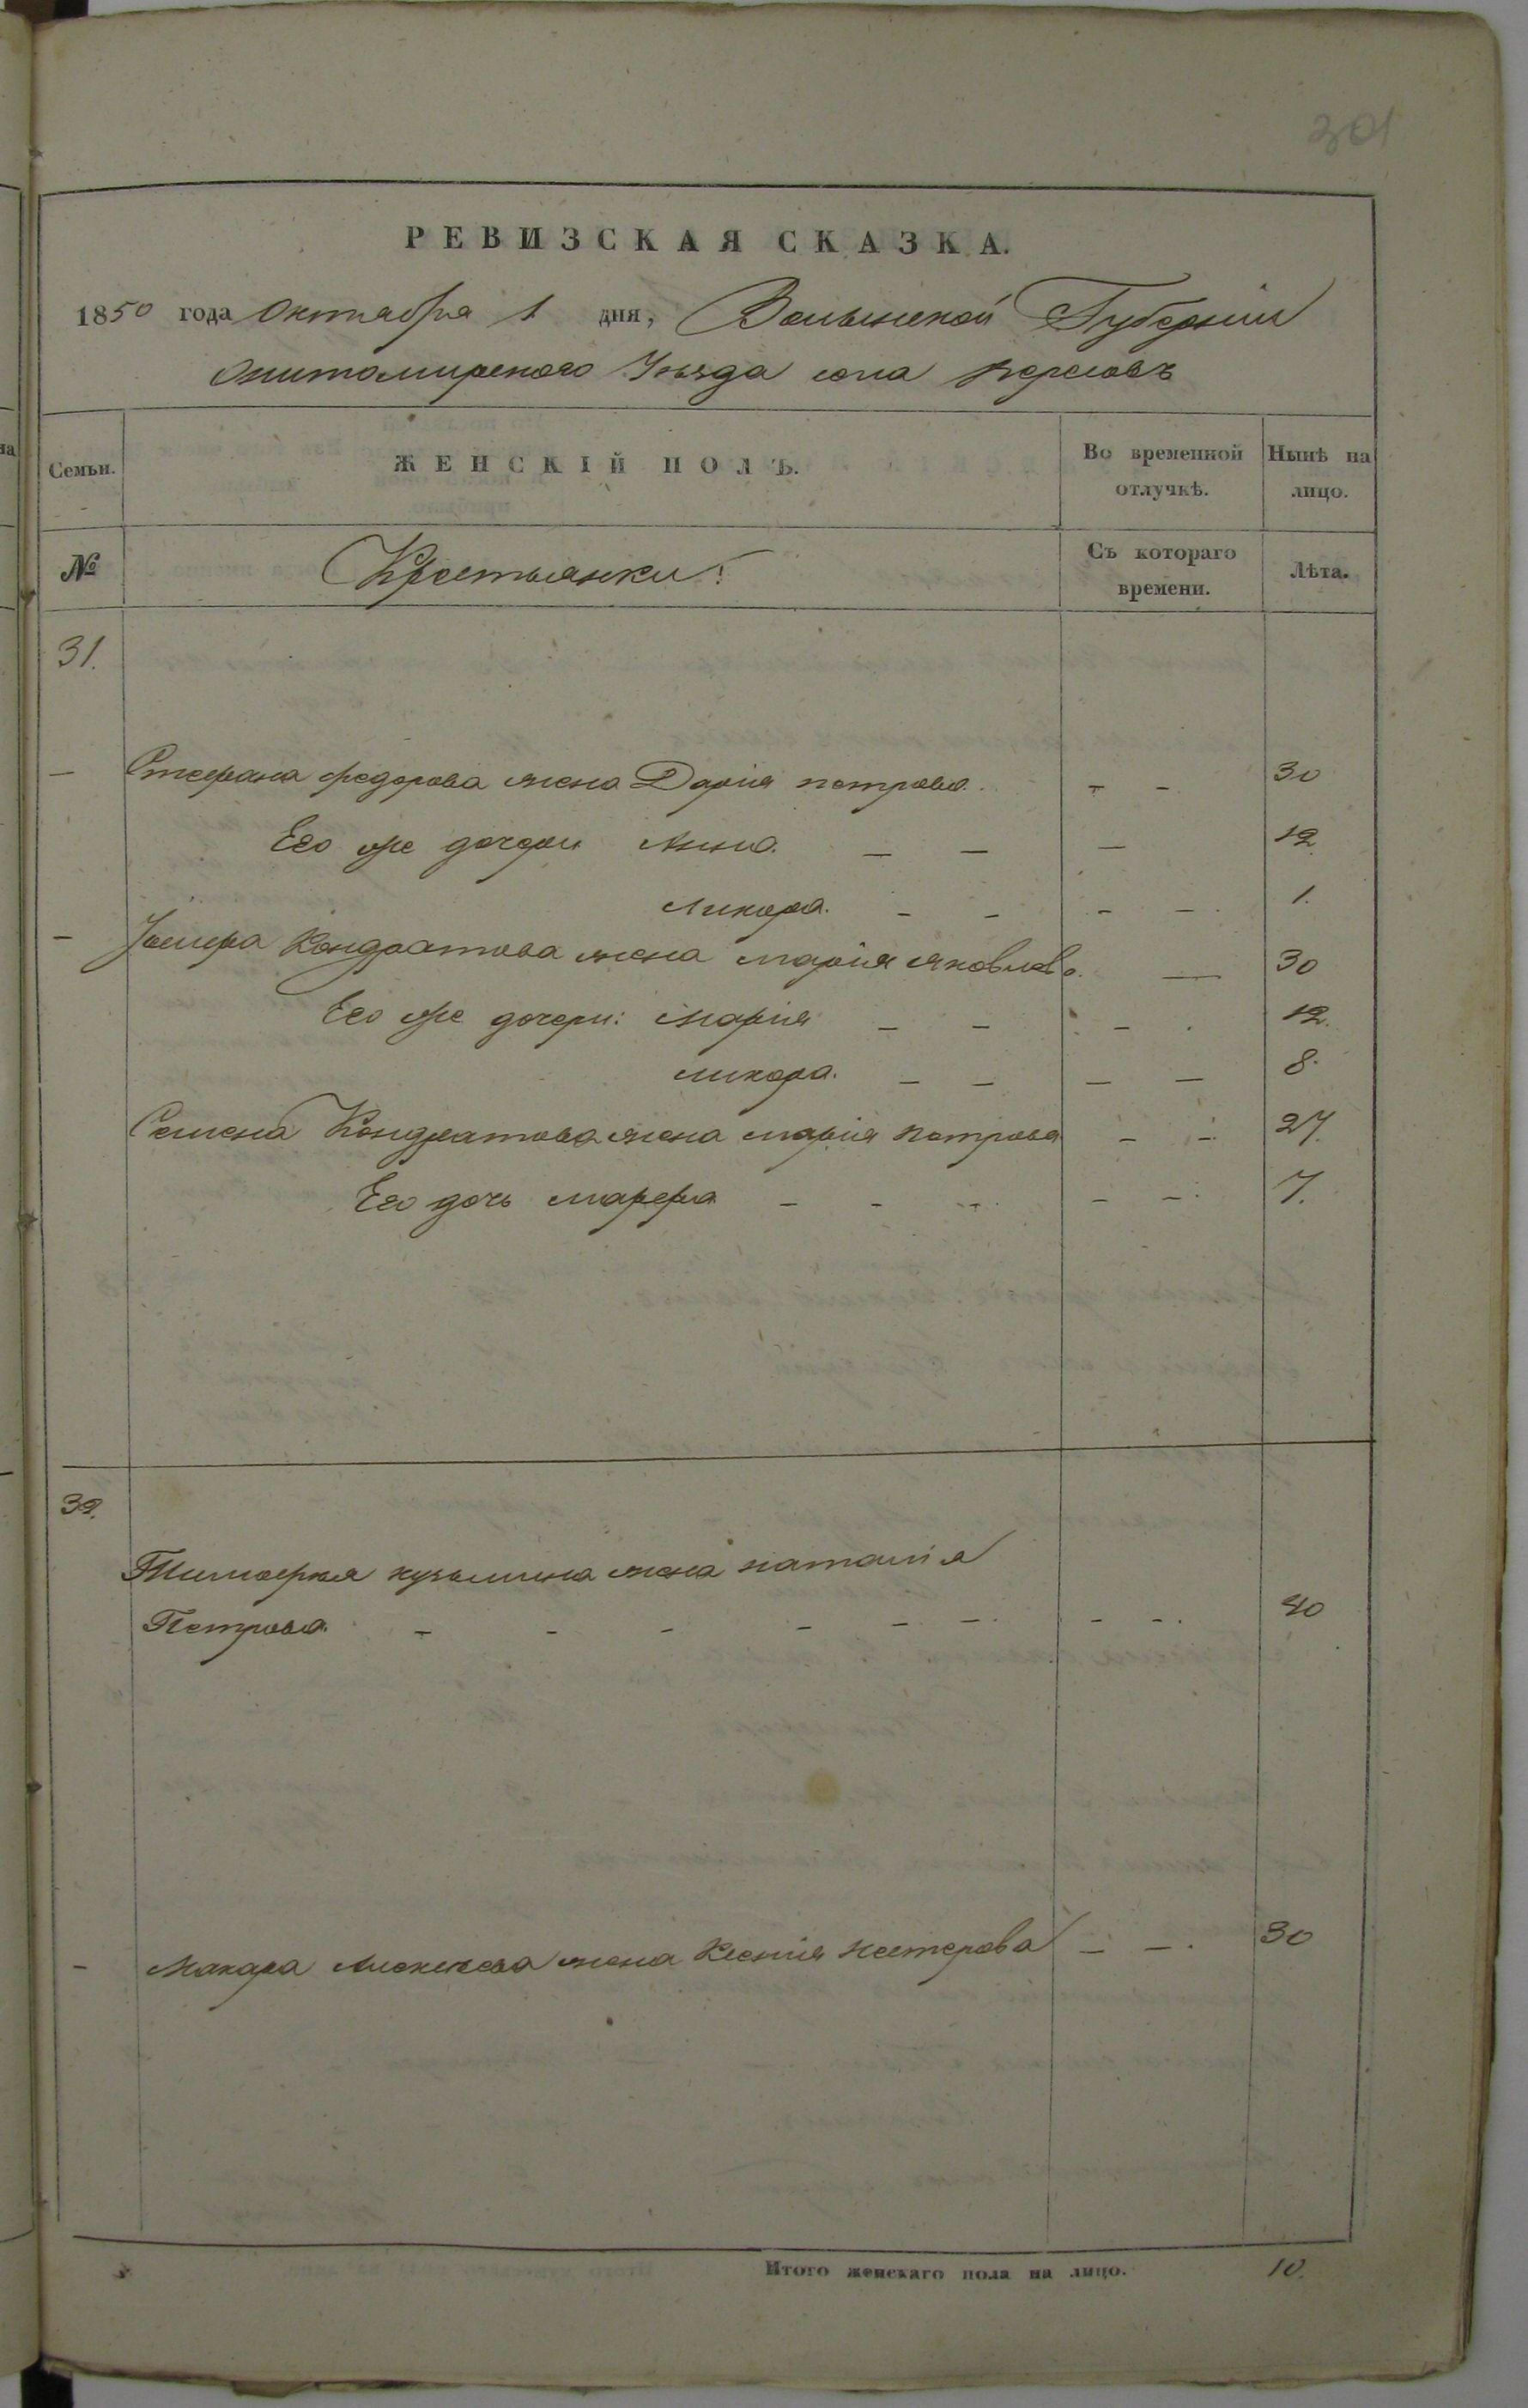 301
РЕВИЗСКАЯ СКАЗКА.
1850 года Октября 1 дня, Волынской Губерніи
Житомирскаго Уѣзда села
Семьи. ЖЕНСКІЙ ПОЛЪ. Во временной отлучкѣ. Нынѣ на лицо.
№ Крестьянки: Съ котораго времени. Лѣта.
31.
— Стефана Федорова жена Дарія Петрова. — — 30
Его же дочери Анна. — — — 12
Ликера. — — — —. 1.
— Кондратова жена Марія Яковлева. — 30
Его же дочери: Марія — — — . 12.
Ликера. — — — — 8.
Семена Кондратова жена Марія Петрова — —. 27.
Его дочь Марфа — — —. — —. 7.
32.
Тимофея Кузьмина жена Наталія
Петрова. — — — — — —. — —. 40
— Макара Алексеева жена Ксенія Нестерова — —. 30
Итого женскаго пола на лицо. 10.